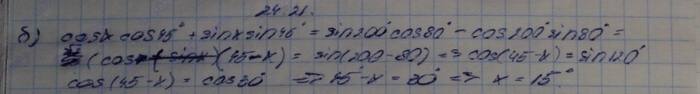 24.21.
б) cosx cos45° + sinx sin45° = sin200° cos80° - cos200° sin80° =
(cos (45-x) = sin(200-80) => cos(45-x) = sin120°
cos(45-x) = cos30° => 45°-x = 30° => x = 15°